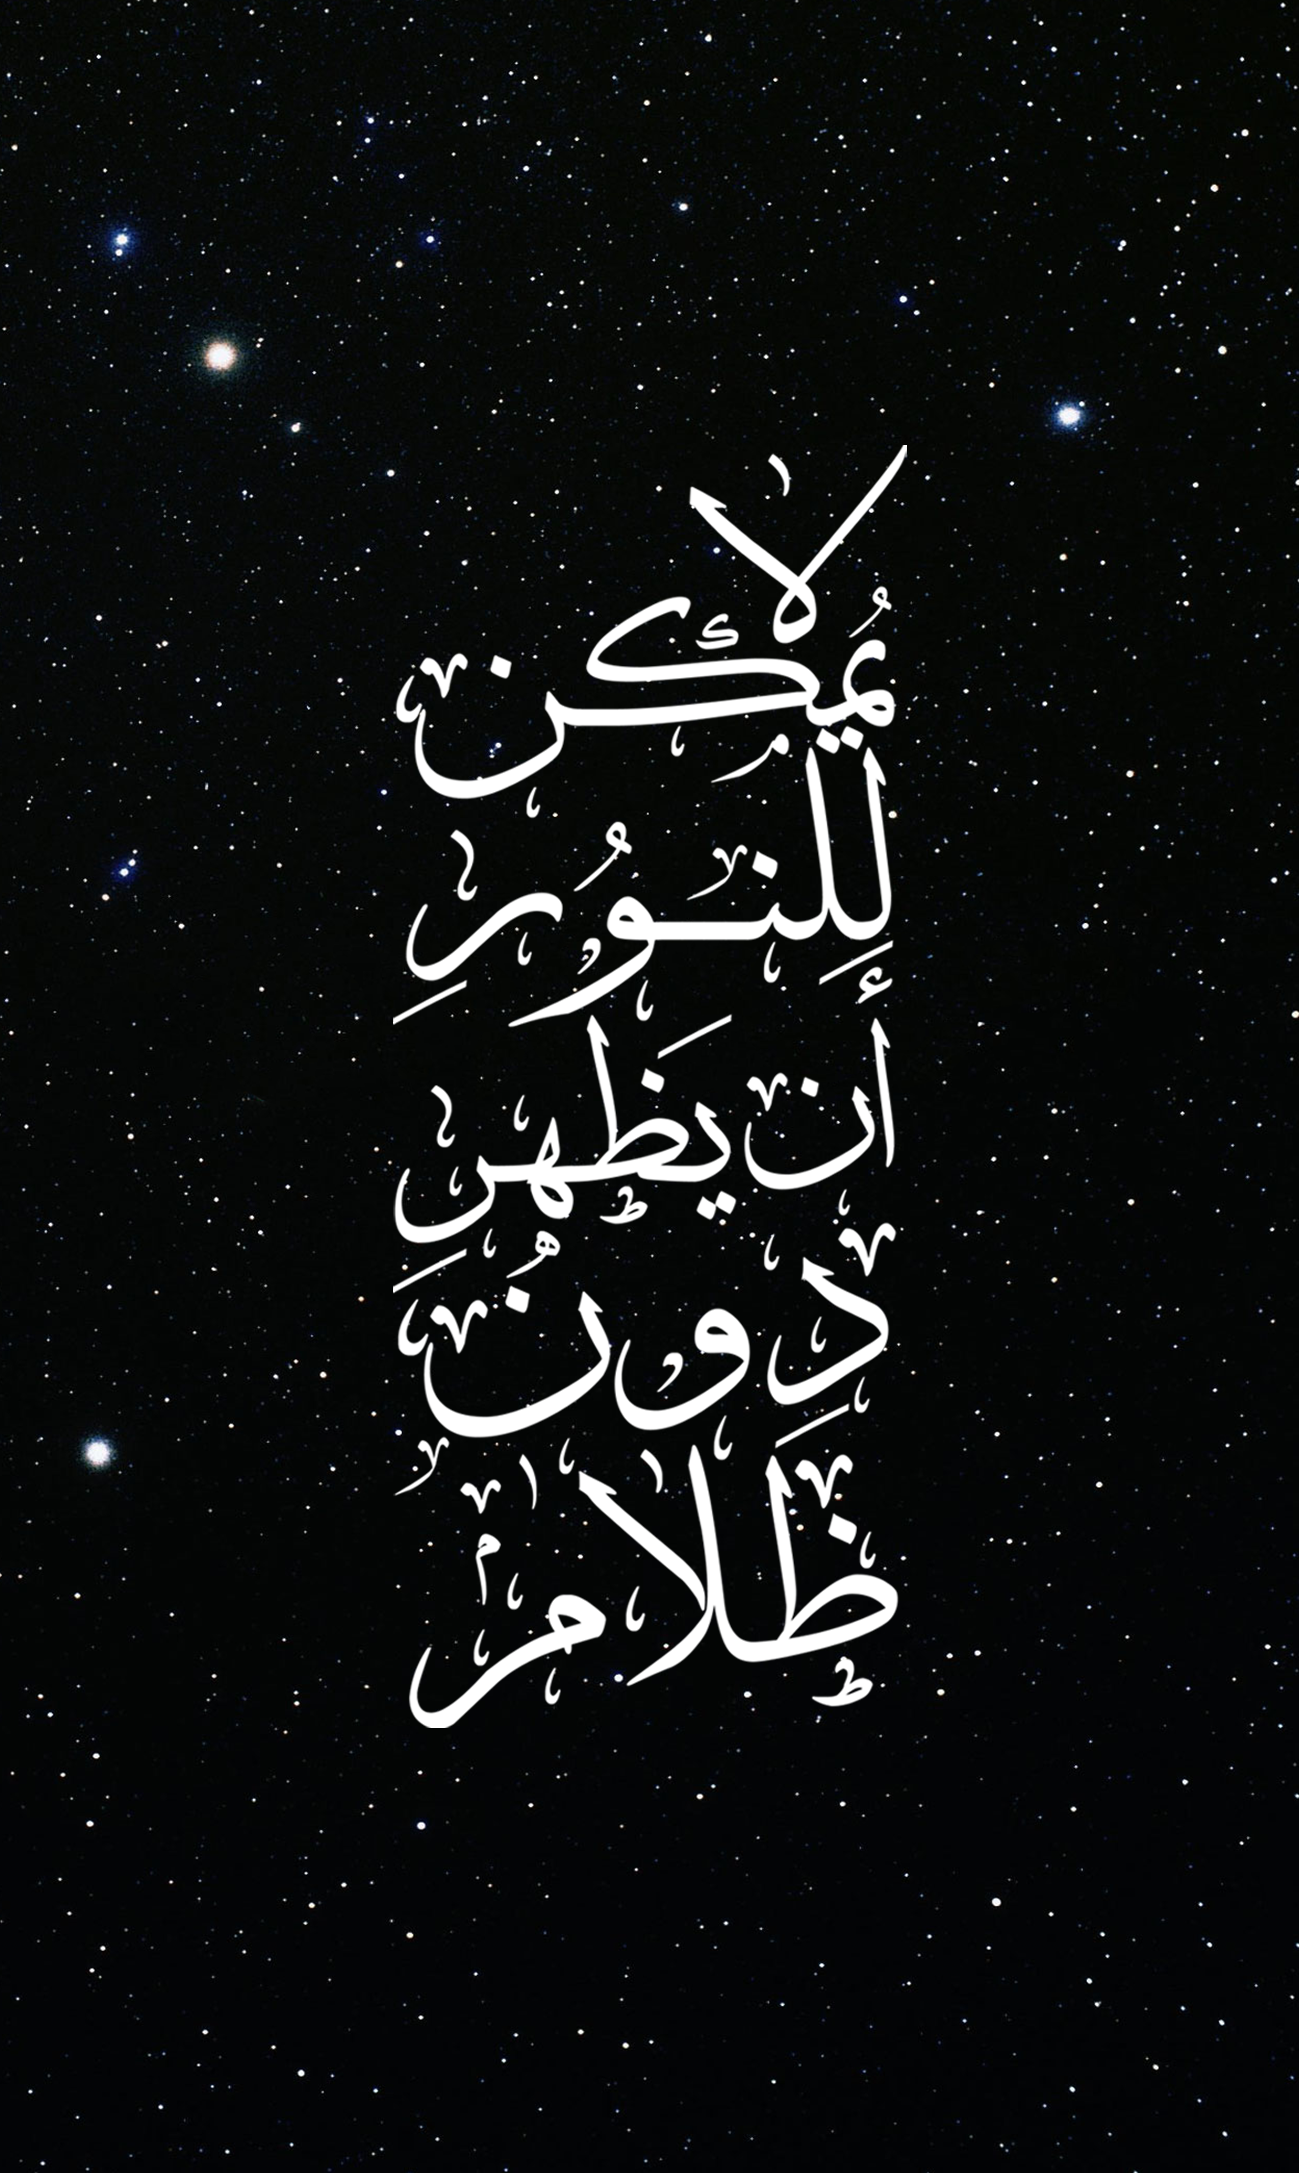 لا
يُمكن
لِلنـوُرِ
أن يَظهرِ
دِونُ
ظَلام